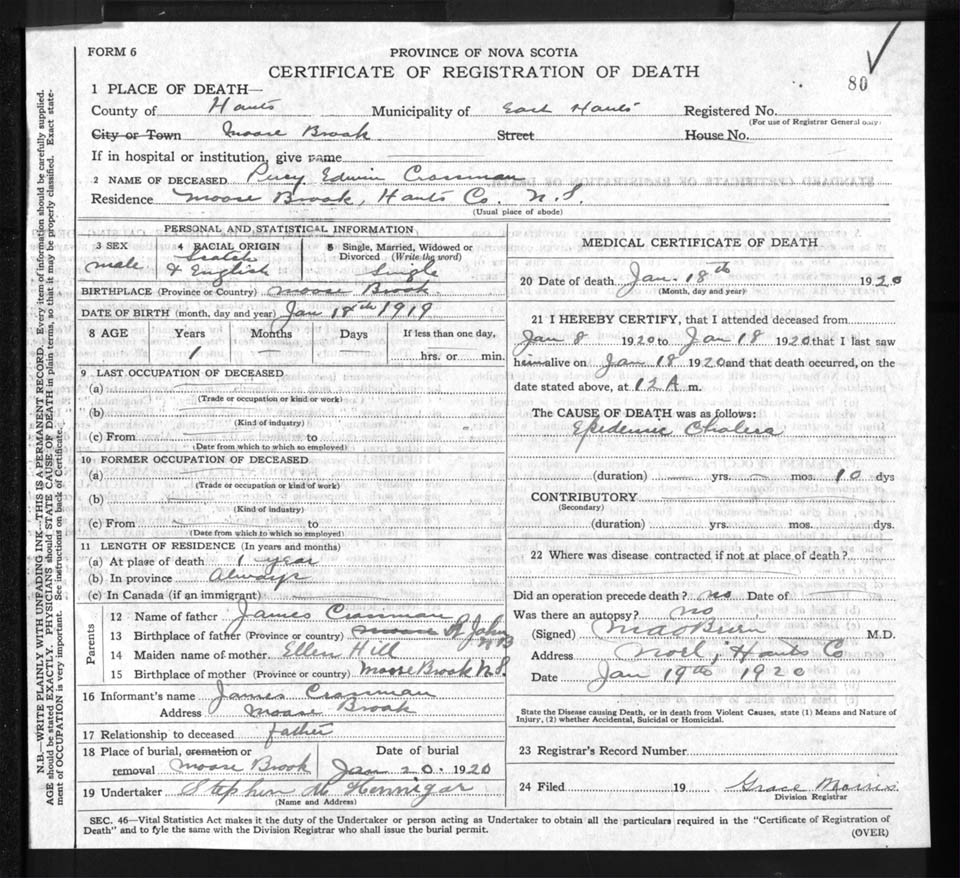 FORM 6
PROVINCE OF NOVA SCOTIA
CERTIFICATE OF REGISTRATION OF DEATH
80
1 PLACE OF DEATH—
County of Hants Municipality of East Hants Registered No.
(For use of Registrar General only)
City or Town Moose Brook Street House No.
If in hospital or institution, give name
2 NAME OF DECEASED Percy Edwin Crossman
Residence Moose Brook, Hants Co. N.S.
(Usual place of abode)
PERSONAL AND STATISTICAL INFORMATION
3 SEX male
4 RACIAL ORIGIN Scotch & English
5 Single, Married, Widowed or Divorced (Write the word) Single
BIRTHPLACE (Province or Country) Moose Brook.
DATE OF BIRTH (month, day and year) Jan 18th 1919
8 AGE Years Months Days If less than one day,
1 — — hrs. or min.
9 LAST OCCUPATION OF DECEASED
(a)
(Trade or occupation or kind or work)
(b)
(Kind of industry)
(c) From to
(Date from which to which so employed)
10 FORMER OCCUPATION OF DECEASED
(a)
(Trade or occupation or kind of work)
(b)
(Kind of industry)
(c) From to
(Date from which to which so employed)
11 LENGTH OF RESIDENCE (In years and months)
(a) At place of death 1 year
(b) In province Always
(c) In Canada (if an immigrant)
Parents
12 Name of father James Crossman
13 Birthplace of father (Province or country) Moose St John NB
14 Maiden name of mother Ellen Hill
15 Birthplace of mother (Province or country) Moose Brook N.S.
16 Informant's name James Crossman
Address Moose Brook
17 Relationship to deceased father
18 Place of burial, cremation or removal Moose Brook
Date of burial Jan 20. 1920
19 Undertaker Stephen Hennigar
(Name and Address)
MEDICAL CERTIFICATE OF DEATH
20 Date of death Jan. 18th 1920
(Month, day and year)
21 I HEREBY CERTIFY, that I attended deceased from
Jan 8 1920 to Jan 18 1920 that I last saw
him alive on Jan 18 1920 and that death occurred, on the
date stated above, at 12 A m.
The CAUSE OF DEATH was as follows:
Epidemic Cholera
(duration) yrs. mos. 10 dys
CONTRIBUTORY
(Secondary)
(duration) yrs. mos. dys.
22 Where was disease contracted if not at place of death?
Did an operation precede death? no Date of
Was there an autopsy? no
(Signed) M.D.
Address Noel, Hants Co
Date Jan 19th 1920
State the Disease causing Death, or in death from Violent Causes, state (1) Means and Nature of
Injury, (2) whether Accidental, Suicidal or Homicidal.
23 Registrar's Record Number
24 Filed 19 Grace Morris
Division Registrar
SEC. 46—Vital Statistics Act makes it the duty of the Undertaker or person acting as Undertaker to obtain all the particulars required in the "Certificate of Registration of
Death" and to fyle the same with the Division Registrar who shall issue the burial permit.
(OVER)
N.B.—WRITE PLAINLY WITH UNFADING INK—THIS IS A PERMANENT RECORD. Every item of information should be carefully supplied.
AGE should be stated EXACTLY. PHYSICIANS should STATE CAUSE OF DEATH in plain terms, so that it may be properly classified. Exact state-
ment of OCCUPATION is very important. See instructions on back of Certificate.